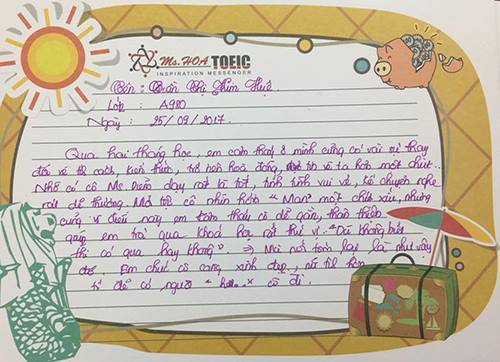 Ms. HOA TOEIC
INSPIRATION MESSENGER
Tên : Trần Thị Kim Huệ
Lớp : A980
Ngày : 25/09/2017
Qua hai tháng học, em cảm thấy ở mình cũng có vài sự thay
đổi về tư cách, kiến thức, trở nên hoà đồng, tự tin hơn một chút.
Nhờ có cô Ms. dạy rất kĩ tốt, tính tình vui vẻ, kể chuyện nghe
rất dễ thương. Mà tội cô nhìn hơi "Man" một chút xíu, nhưng
cũng vì điều này em cảm thấy cô dễ gần, thân thiện
giúp em trải qua khoá học rất thú vị. "Dù không biết
thi có qua hay không" => Mọi nói tóm lại là như vậy
đó. Em chúc cô càng xinh đẹp, nữ tính hơn
tí để có người cô đi.